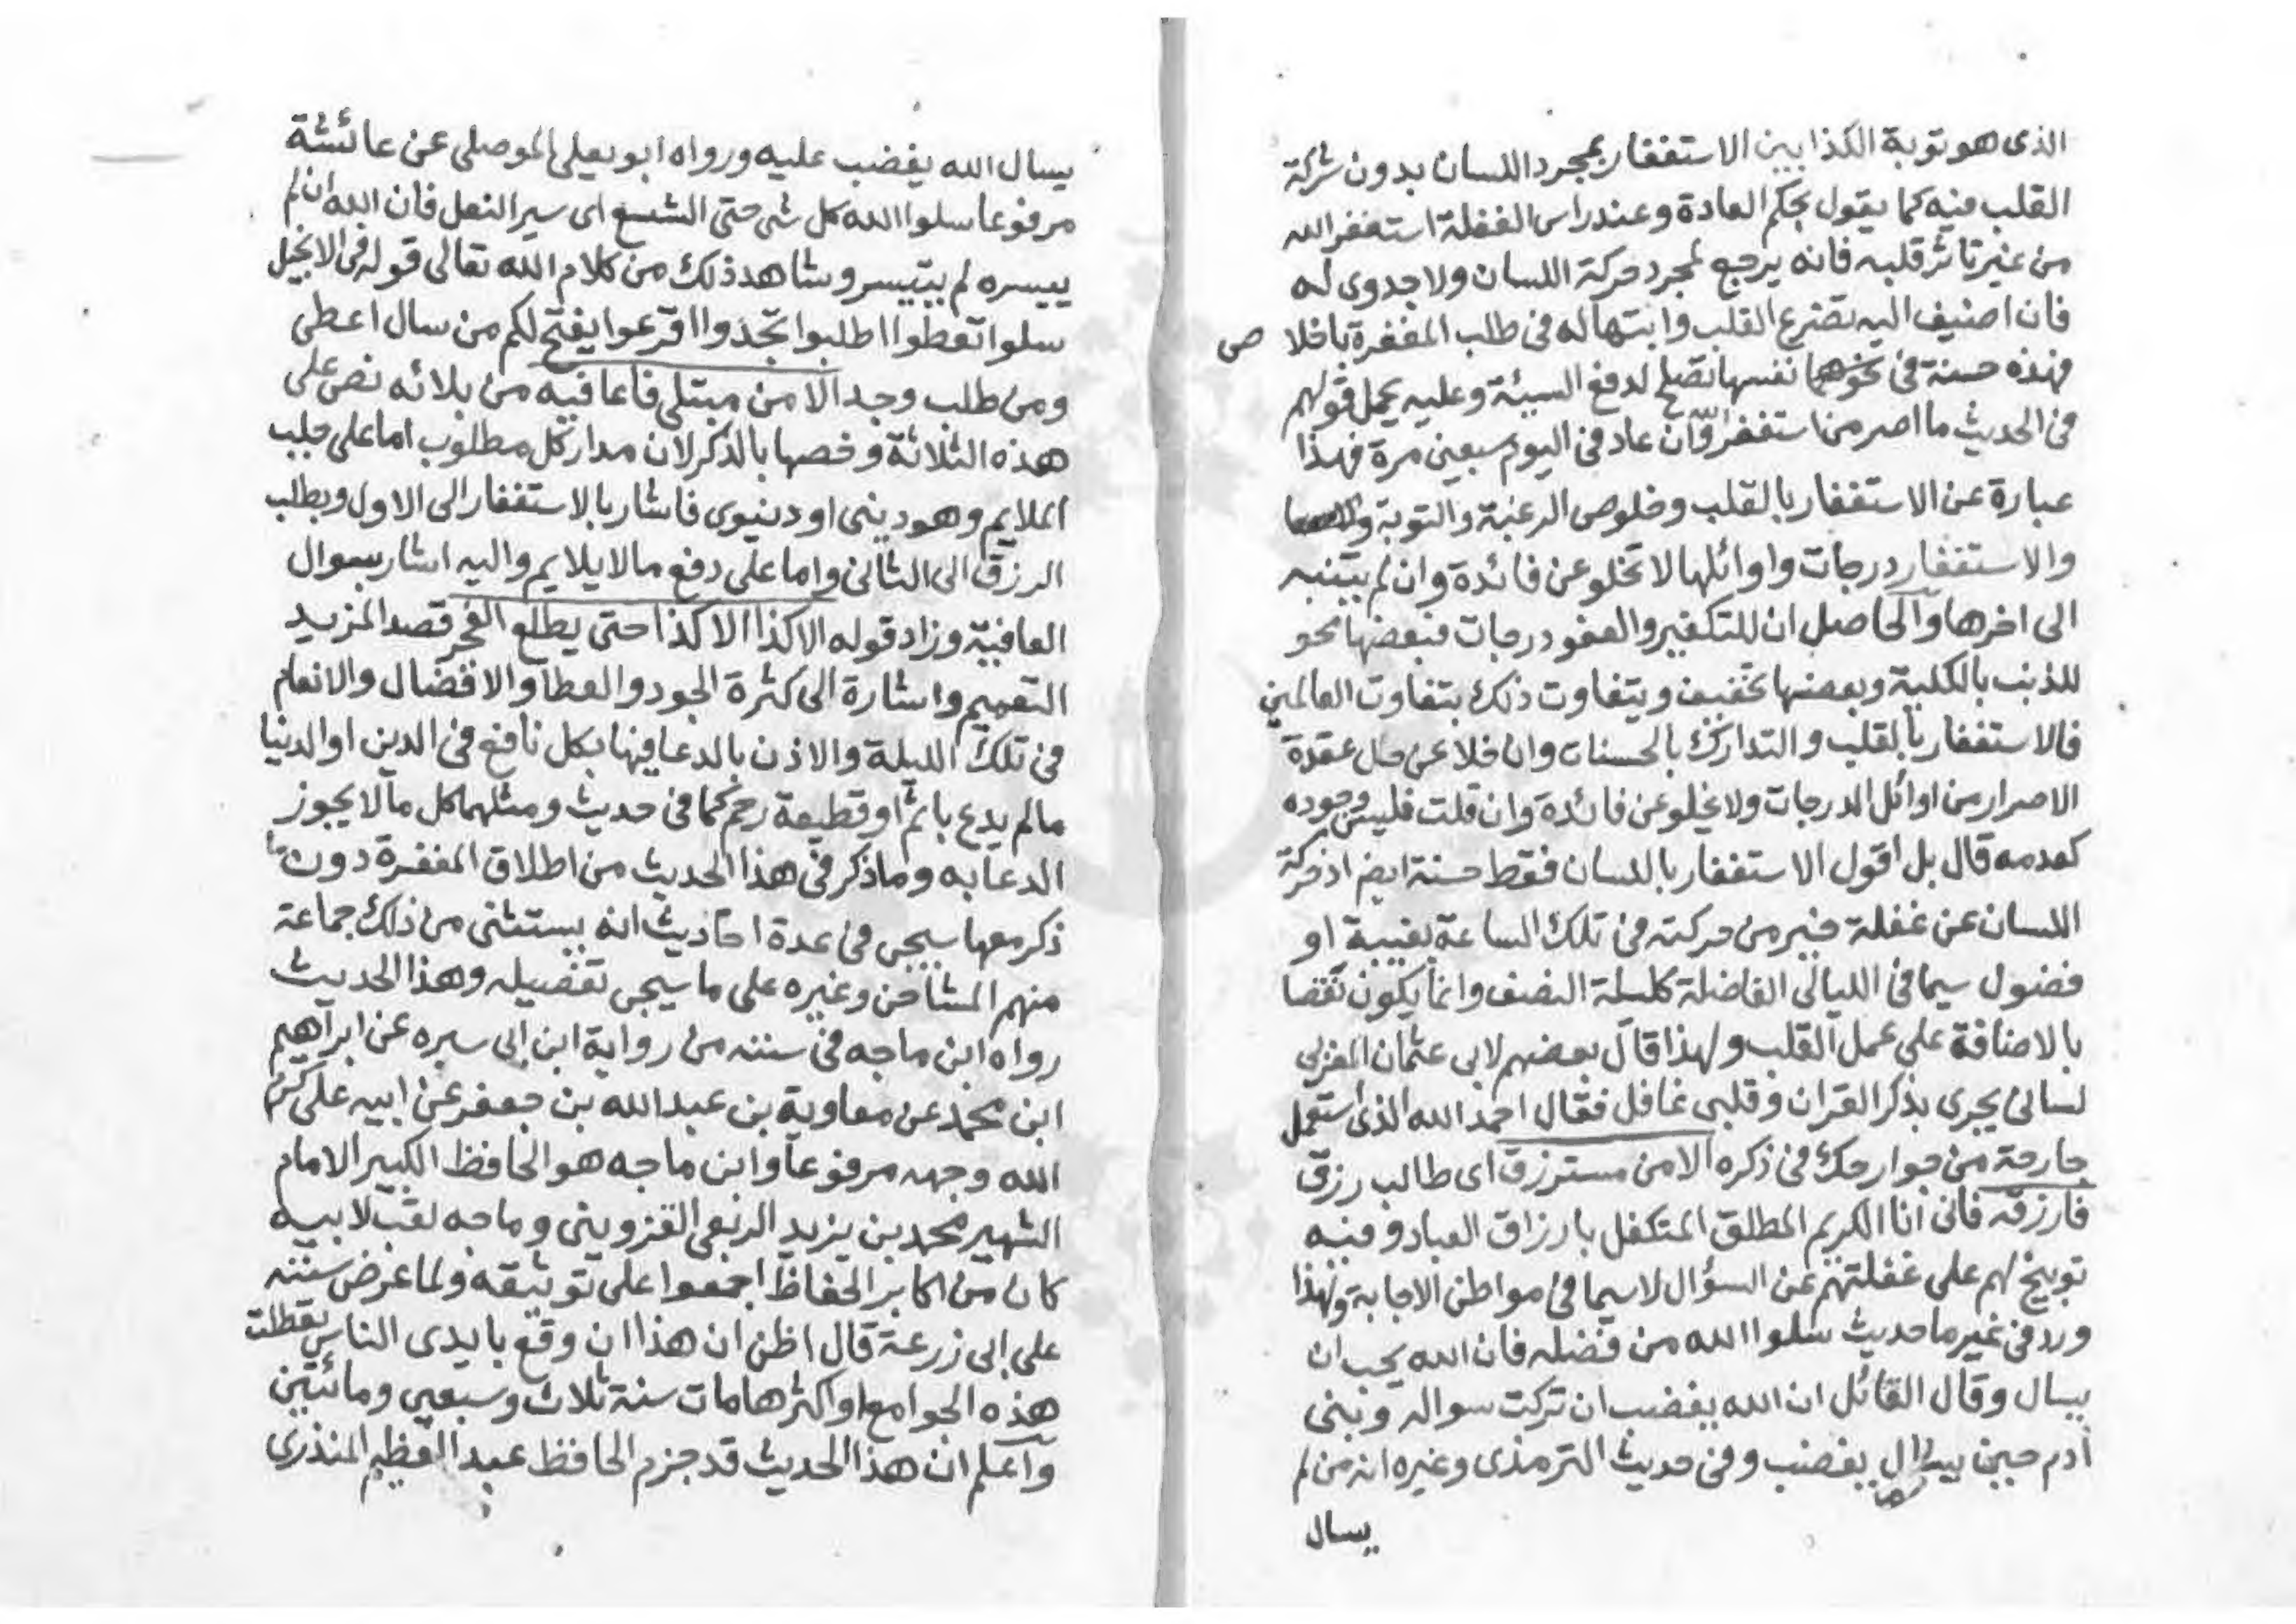 الذى هو توبة الكذابين الاستغفار بمجرد اللسان بدون شركة
القلب فيه كما يقول بحكم العادة وعند راس الغفلة استغفر الله
من غير تاثر قلبه فانه يرجع لمجرد حركة اللسان ولا جدوى له
فان اضيف اليه تضرع القلب وابتهاله فى طلب المغفرة باخلاص
فهذه حسنة فى نفسها تصلح لدفع السيئة وعليه يحمل قولهم
فى الحديث ما اصر من استغفر الله وان عاد فى اليوم سبعين مرة فهذا
عبارة عن الاستغفار بالقلب وخلوص الرغبة والتوبة
والاستغفار درجات واوائلها لا تخلو عن فائدة وان لم يتنبه
الى اخرها والحاصل ان للتكفير والعفو درجات فبعضها نحو
للذنب بالكلية وبعضها تخفيف ويتفاوت ذلك بتفاوت العالمين
فالاستغفار بالقلب والتدارك بالحسنات وان خلا عن حل عقدة
الاصرار من اوائل الدرجات ولا يخلو عن فائدة وان قلت فليس وجوده
كعدمه قال بل اقول الاستغفار باللسان فقط حسنة ايض اذ حركة
اللسان عن غفلة خير من حركته فى تلك الساعة بغيبة او
فضول سيما فى الليالى الفاضلة كليلة النصف وانما يكون نقصا
بالاضافة على عمل القلب ولهذا قال بعضهم لابى عثمان المغربى
لسانى يجرى بذكر القران وقلبى غافل فقال احمد الله الذى استعمل
جارحة من جوارحك فى ذكره الا من مسترزق اى طالب رزق
فارزقه فانى انا الكريم المطلق المتكفل بارزاق العباد وفيه
توبيخ لهم على غفلتهم عن السؤال لاسيما فى مواطن الاجابة ولهذا
ورد فى غير ما حديث سلوا الله من فضله فان الله يحب ان
يسال وقال القائل ان الله يغضب ان تركت سواله وبنى
ادم حين يسال يغضب وفى حديث الترمذى وغيره انه من لم
يسال
يسال الله يغضب عليه ورواه ابو يعلى الموصلى عن عائشة
مرفوعا سلوا الله كل شى حتى الشسع اى سير النعل فان الله ان لم
ييسره لم يتيسر وشاهد ذلك من كلام الله تعالى قوله فى الانجيل
سلوا تعطوا اطلبوا تجدوا اقرعوا يفتح لكم من سال اعطى
ومن طلب وجد الا من مبتلى فاعافيه من بلائه نص على
هذه الثلاثة وخصها بالذكر لان مدار كل مطلوب اما على جلب
الملايم وهو دينى او دنيوى فاشار بالاستغفار الى الاول وبطلب
الرزق الى الثانى واما على دفع ما لا يلايم واليه اشار بسوال
العافية وزاد قوله الا كذا الا كذا حتى يطلع الفجر قصد المزيد
التعميم واشارة الى كثرة الجود والعطا والافضال والانعام
فى تلك الليلة والاذن بالدعا فيها بكل نافع فى الدين او الدنيا
ما لم يدع باثم او قطيعة رحم كما فى حديث ومثلهما كل ما لا يجوز
الدعا به وما ذكر فى هذا الحديث من اطلاق المغفرة دون ما
ذكر معها سيجى فى عدة احاديث انه يستثنى من ذلك جماعة
منهم المشاحن وغيره على ما سيجى تفصيله وهذا الحديث
رواه ابن ماجه فى سننه من رواية ابن ابى سبره عن ابراهيم
ابن محمد عن معاوية بن عبد الله بن جعفر عن ابيه على كرم
الله وجهه مرفوعا وابن ماجه هو الحافظ الكبير الامام
الشهير محمد بن يزيد الربعى القزوينى وماجه لقب لابيه
كان من اكابر الحفاظ اجمعوا على توثيقه ولما عرض سننه
على ابى زرعة قال اظن ان هذا ان وقع بايدى الناس تعطلت
هذه الجوامع او اكثرها مات سنة ثلاث وسبعين ومائتين
واعلم ان هذا الحديث قد جزم الحافظ عبد العظيم المنذرى